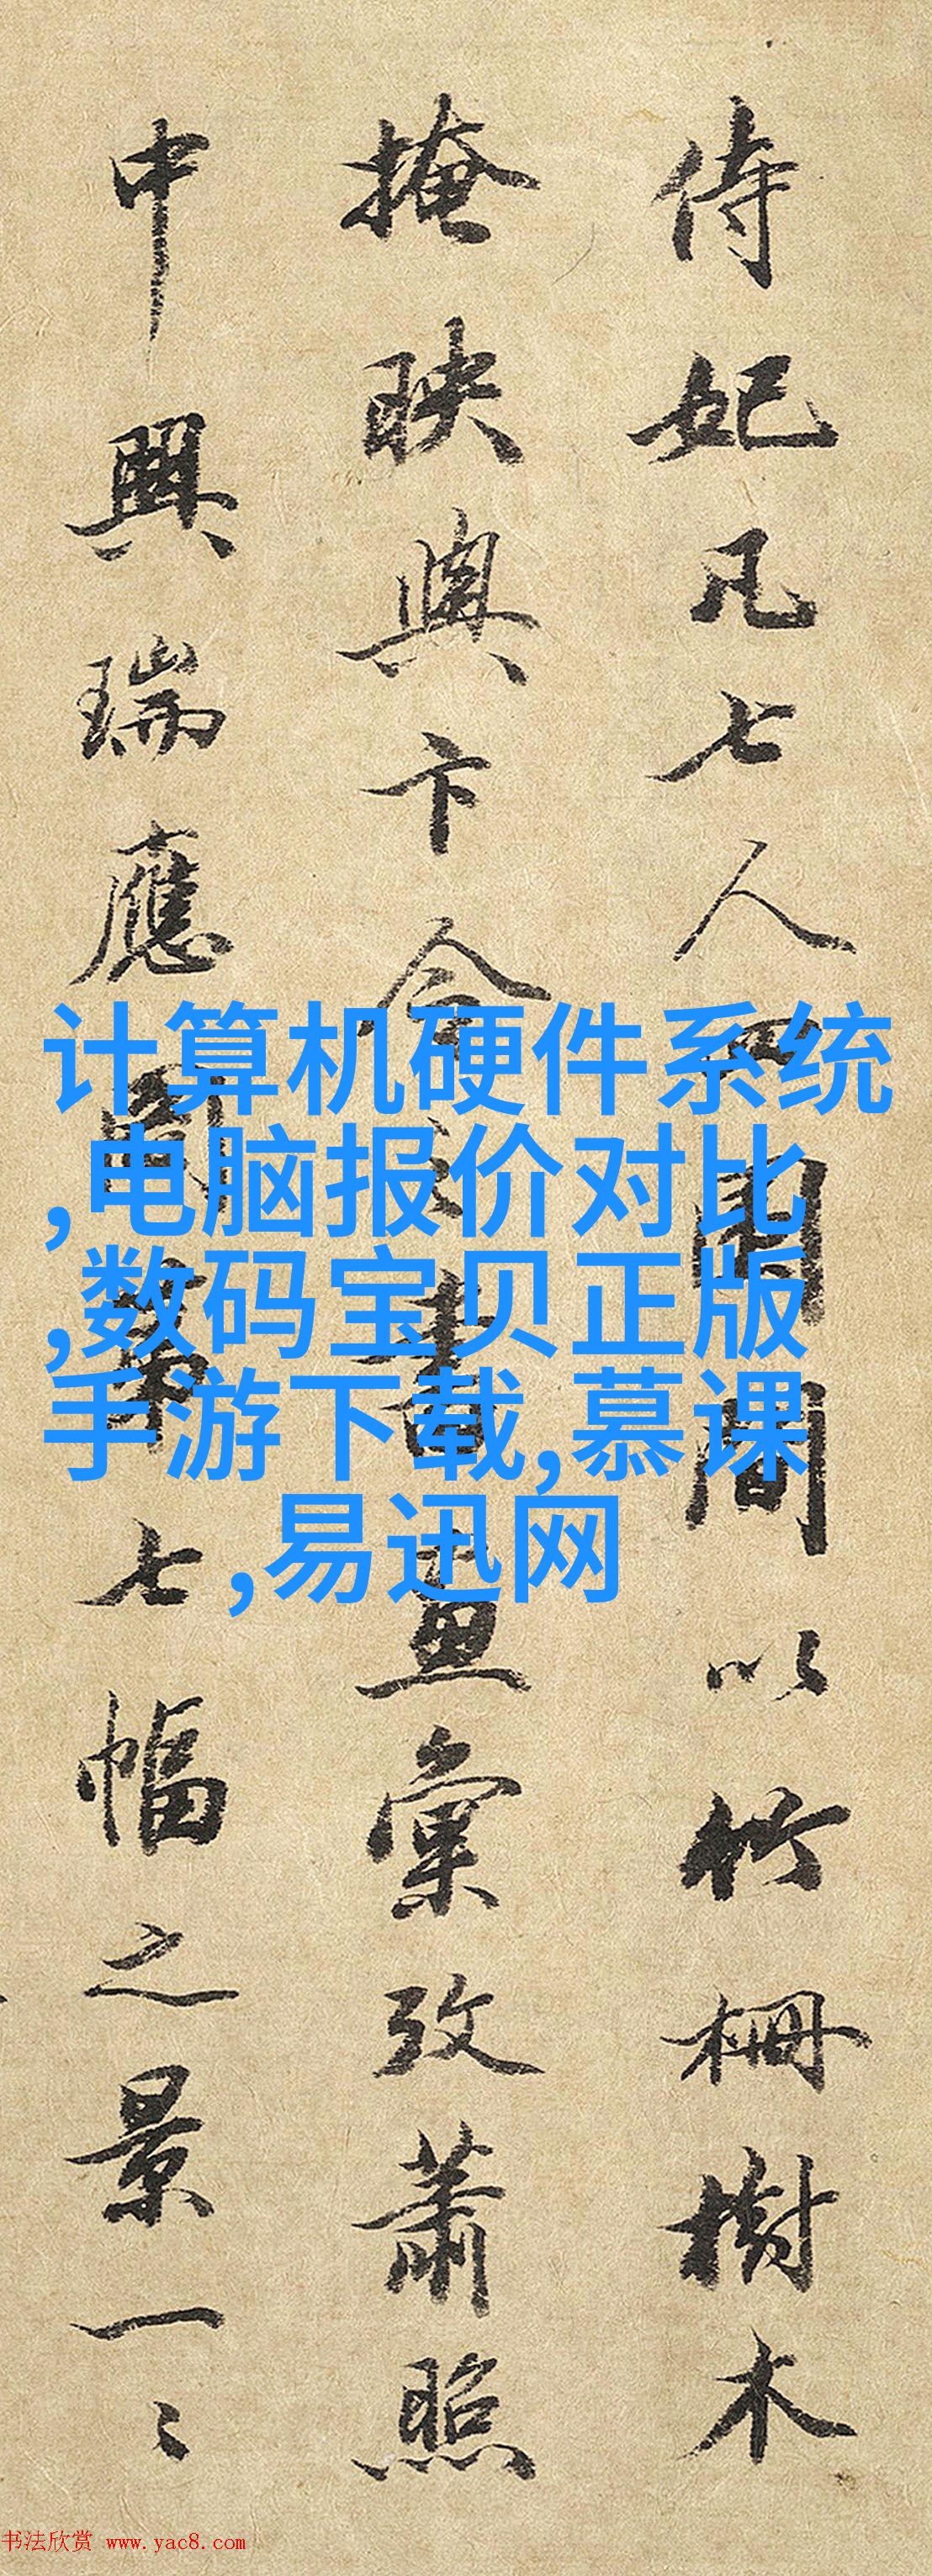 侍妃凡七人四間以竹柵樹木
掩映與卞令之書畫彙攷蕭照
中興瑞應圖第七幅之景一〻
计算机硬件系统
,电脑报价对比
,数码宝贝正版
手游下载,慕课
,易迅网
书法欣赏 www.yac8.com